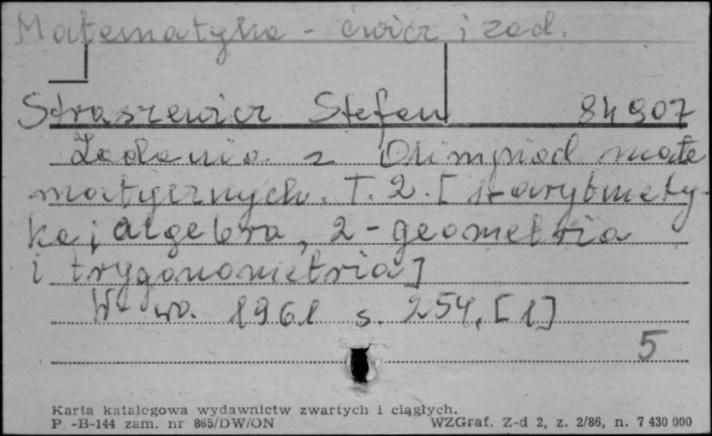 Matematyka - ćwicz i zad.
Straszewicz Stefan 84907
Zadania z Olimpiad mate
matycznych. T. 2. [1-arytmety-
ka i algebra, 2-geometria
i trygonometria]
W-wa. 1961 s. 254, [1]
5
Karta katalogowa wydawnictw zwartych i ciągłych.
P -B-144 zam. nr 865/DW/ON WZGraf. Z-d 2, z. 2/86, n. 7 430 000